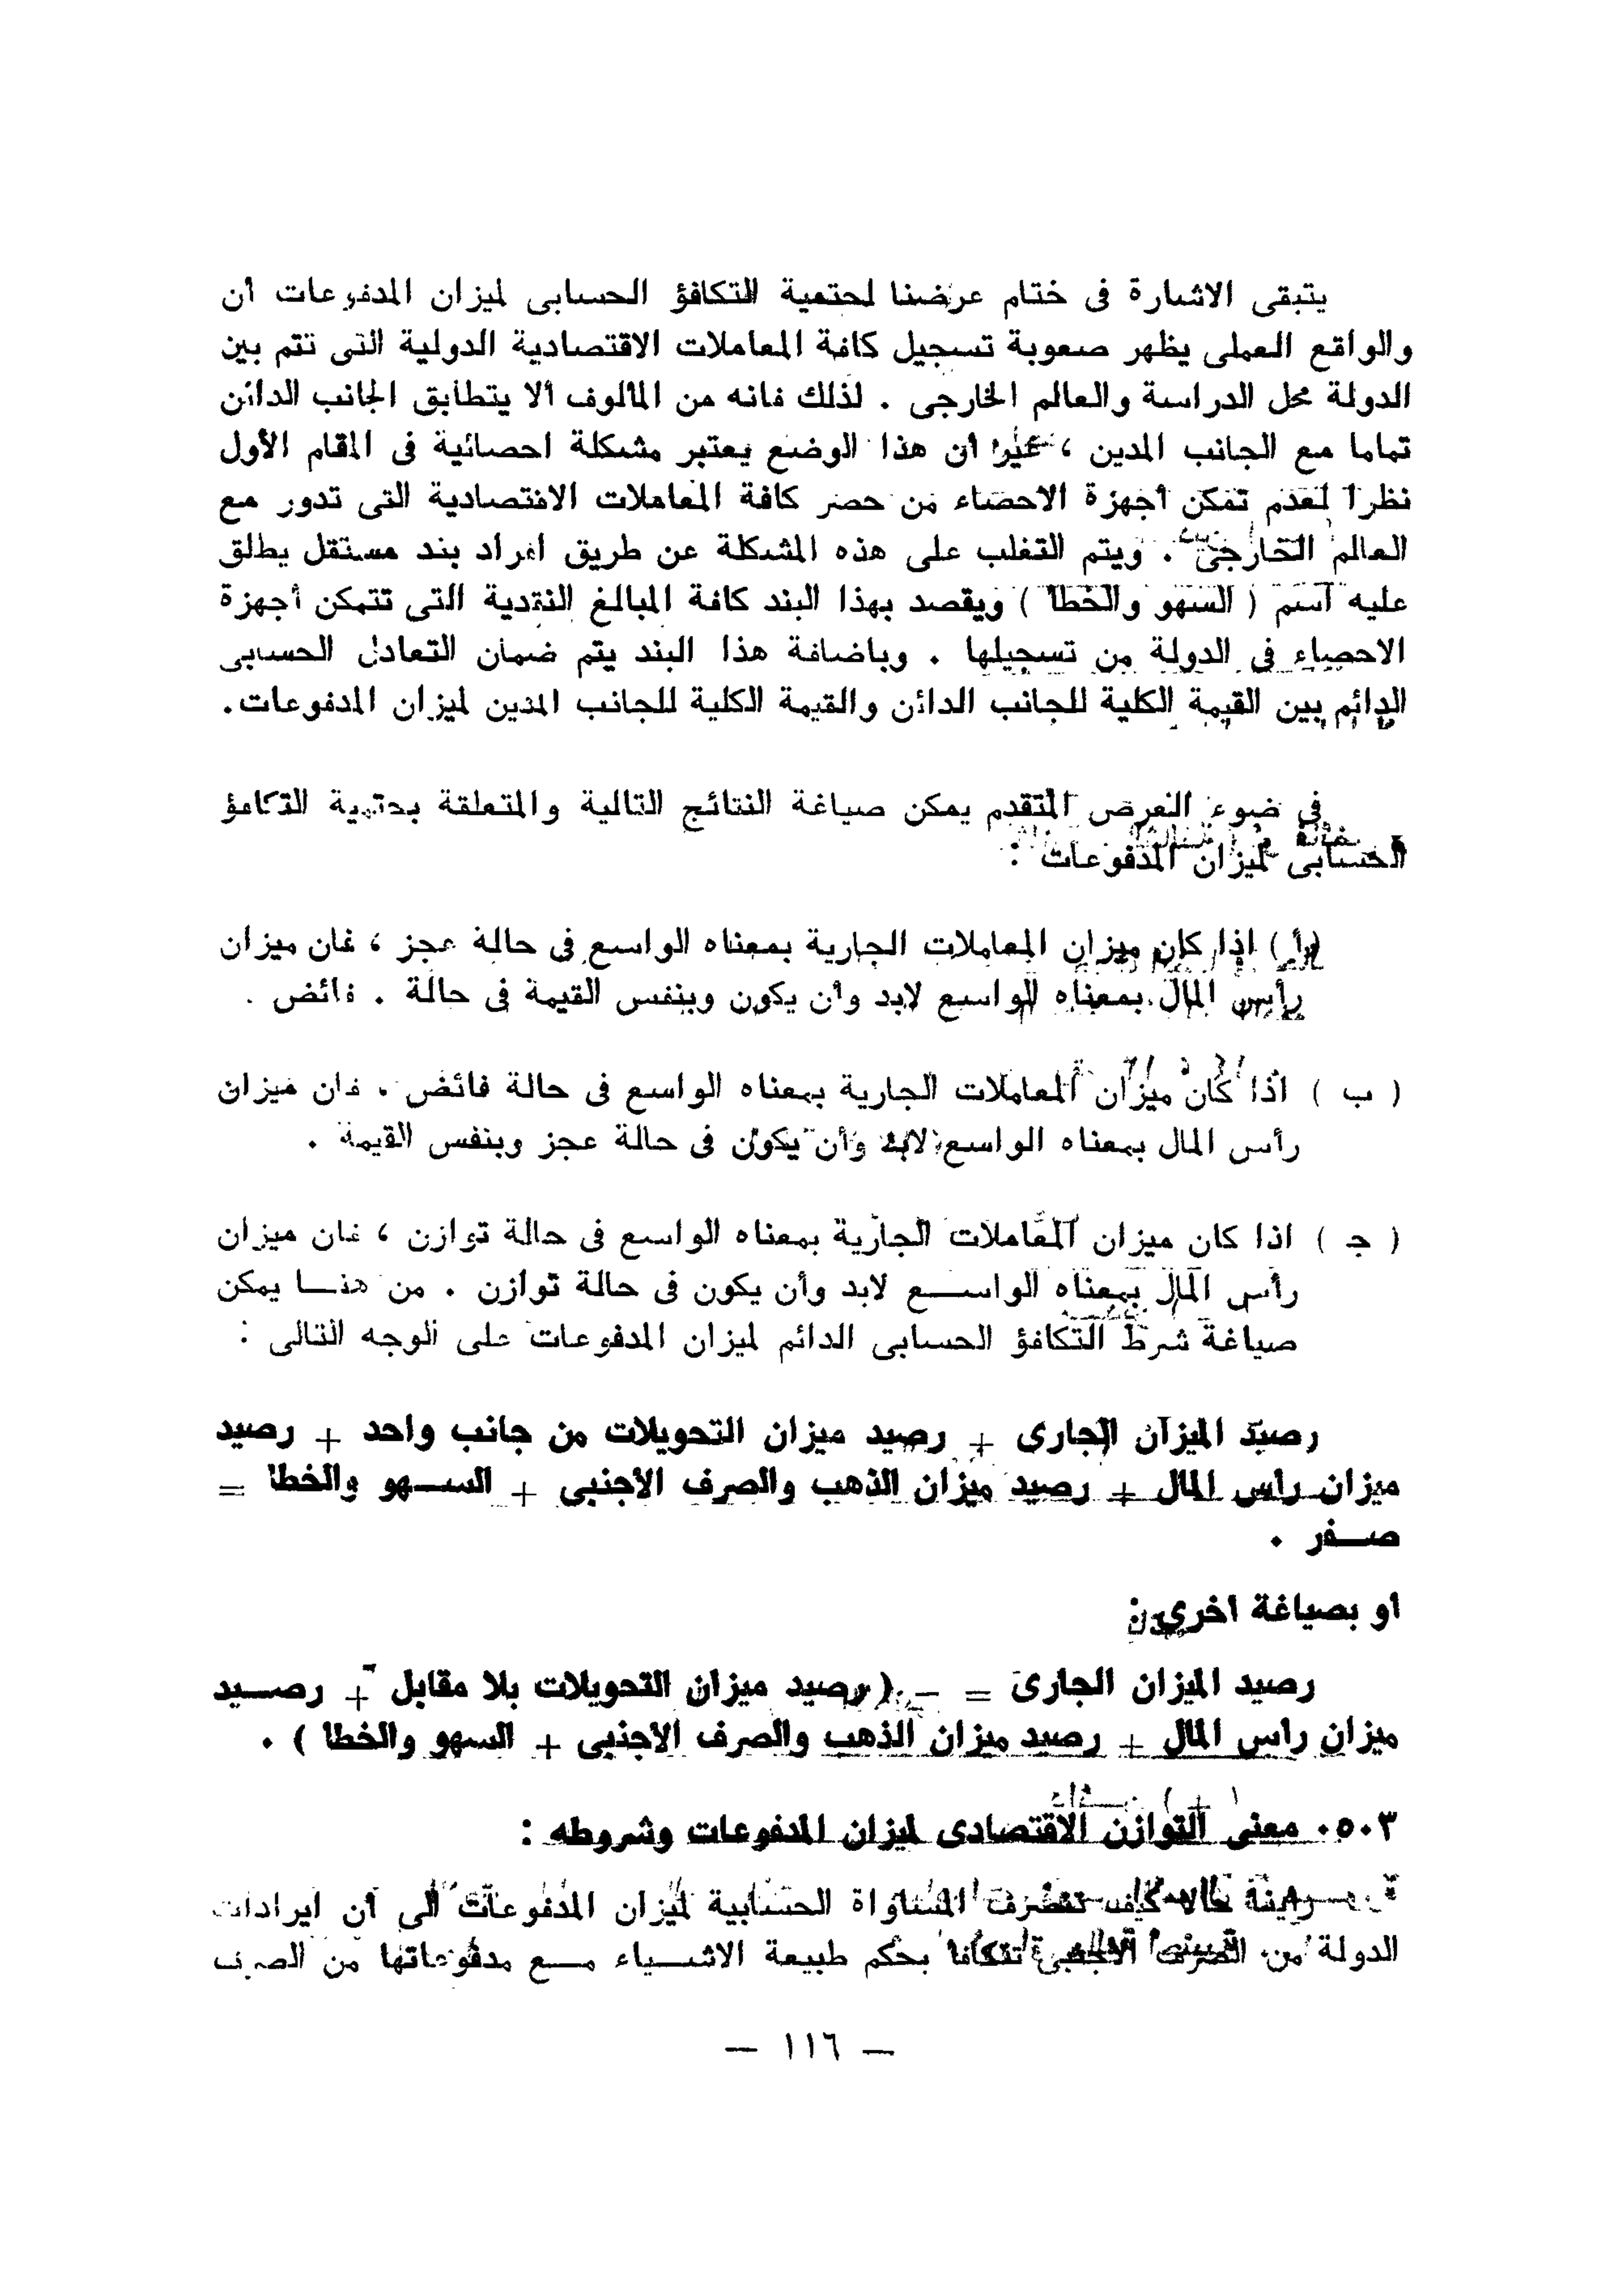 يتبقى الاشارة فى ختام عرضنا لحتمية التكافؤ الحسابى لميزان المدفوعات أن
والواقع العملى يظهر صعوبة تسجيل كافة المعاملات الاقتصادية الدولية التى تتم بين
الدولة محل الدراسة والعالم الخارجى . لذلك فانه من المألوف ألا يتطابق الجانب الدائن
تماما مع الجانب المدين ، غير أن هذا الوضع يعتبر مشكلة احصائية فى المقام الأول
نظرا لعدم تمكن أجهزة الاحصاء من حصر كافة المعاملات الاقتصادية التى تدور مع
العالم الخارجى . ويتم التغلب على هذه المشكلة عن طريق افراد بند مستقل يطلق
عليه اسم ( السهو والخطأ ) ويقصد بهذا البند كافة المبالغ النقدية التى تتمكن أجهزة
الاحصاء فى الدولة من تسجيلها . وباضافة هذا البند يتم ضمان التعادل الحسابى
الدائم بين القيمة الكلية للجانب الدائن والقيمة الكلية للجانب المدين لميزان المدفوعات.
فى ضوء العرض المتقدم يمكن صياغة النتائج التالية والمتعلقة بحتمية التكافؤ
الحسابى لميزان المدفوعات :
( أ ) اذا كان ميزان المعاملات الجارية بمعناه الواسع فى حالة عجز ، فان ميزان
رأس المال بمعناه الواسع لابد وأن يكون وبنفس القيمة فى حالة . فائض .
( ب ) اذا كان ميزان المعاملات الجارية بمعناه الواسع فى حالة فائض . فان ميزان
رأس المال بمعناه الواسع لابد وأن يكون فى حالة عجز وبنفس القيمة .
( ج ) اذا كان ميزان المعاملات الجارية بمعناه الواسع فى حالة توازن ، فان ميزان
رأس المال بمعناه الواسـع لابد وأن يكون فى حالة توازن . من هنـا يمكن
صياغة شرط التكافؤ الحسابى الدائم لميزان المدفوعات على الوجه التالى :
رصيد الميزان الجارى + رصيد ميزان التحويلات من جانب واحد + رصيد
ميزان راس المال + رصيد ميزان الذهب والصرف الاجنبى + السـهو والخطا =
صـفر .
او بصياغة اخرى :
رصيد الميزان الجارى = – ( رصيد ميزان التحويلات بلا مقابل + رصـيد
ميزان راس المال + رصيد ميزان الذهب والصرف الاجنبى + السهو والخطا ) .
٥٠٣. معنى التوازن الاقتصادى لميزان المدفوعات وشروطه :
رأينا حالا كيف تنصرف المساواة الحسابية لميزان المدفوعات الى أن ايرادات
الدولة من الصرف الاجنبى تتكافأ بحكم طبيعة الاشـياء مـع مدفوعاتها من الصرف
— ١١٦ —